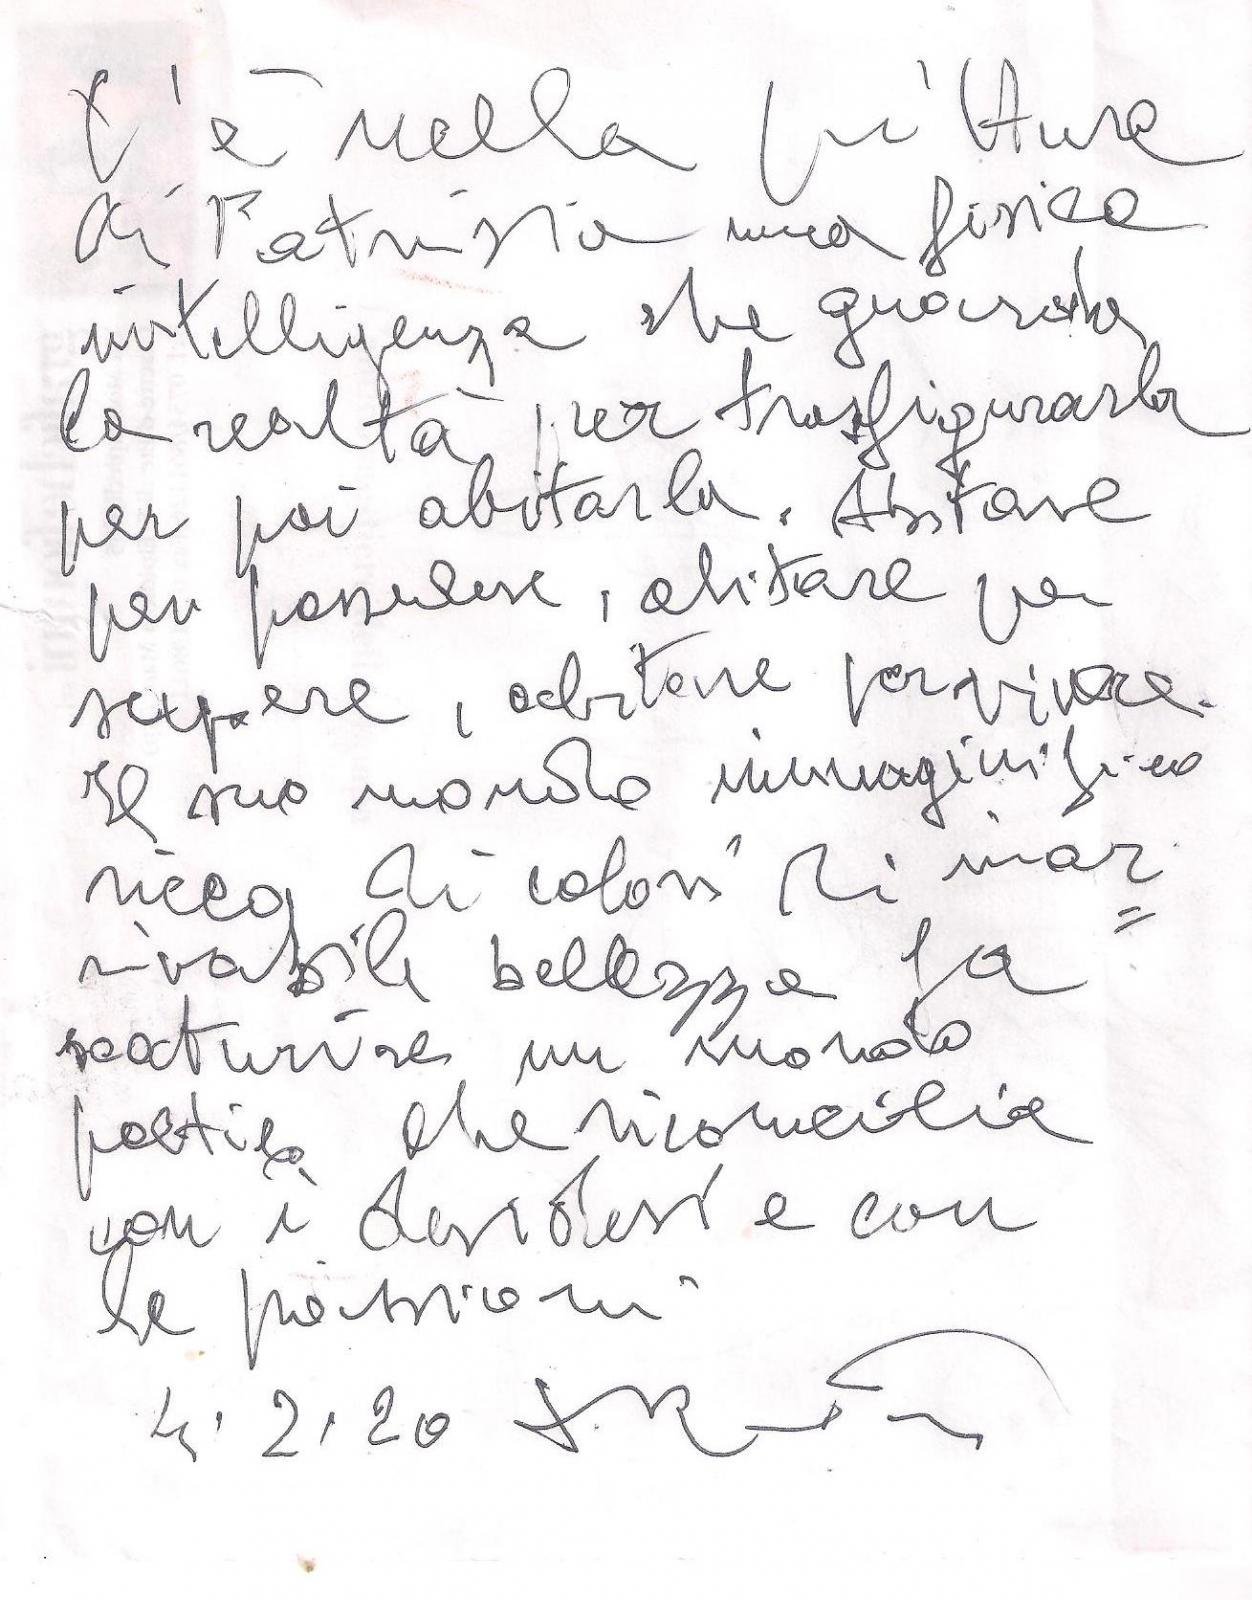 C'è nella pittura
di Patrizia una fisica
intelligenza che guarda
la realtà per trasfigurarla
per poi abitarla. Abitare
per possedere, abitare per
sapere, abitare per vivere.
Il suo mondo immaginifico
ricco di colori di inar=
rivabile bellezza fa
scaturire un mondo
poetico che riconcilia
con i desideri e con
le passioni
4.2.20